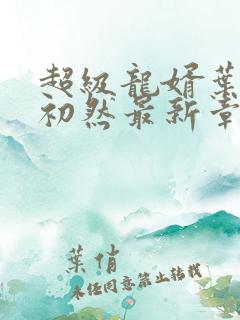 超級龍婿葉
初然最新章
葉俏
未经同意禁止转载